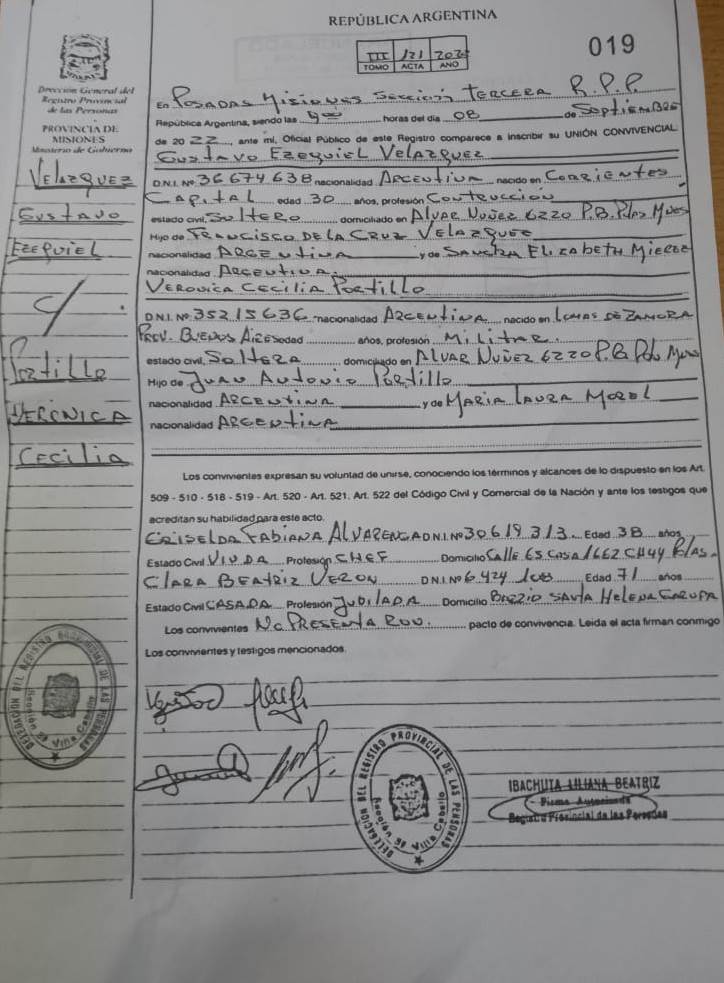 REPÚBLICA ARGENTINA
III 121 2022
TOMO ACTA AÑO
019
Dirección General del
Registro Provincial
de las Personas
PROVINCIA DE
MISIONES
Ministerio de Gobierno
VELAZQUEZ
GUSTAVO
EZEQUIEL
C/.
PORTILLO
VERONICA
CECILIA
En POSADAS MISIONES SECCION TERCERA R.P.P.
República Argentina, siendo las 9 00 horas del día 08 de SEPTIEMBRE
de 20 22, ante mi, Oficial Público de este Registro comparece a inscribir su UNIÓN CONVIVENCIAL
GUSTAVO EZEQUIEL VELAZQUEZ
D.N.I. Nº 36674638 nacionalidad ARGENTINA nacido en CORRIENTES
CAPITAL edad 30 años, profesión CONTRUCCION
estado civil, SOLTERO domiciliado en ALVAR NUÑEZ 6220 P.B. Pdas Mnes
Hijo de FRANCISCO DE LA CRUZ VELAZQUEZ
nacionalidad ARGENTINA y de SANDRA ELIZABETH
nacionalidad ARGENTINA.
VERONICA CECILIA PORTILLO
D.N.I. Nº 35215636 nacionalidad ARGENTINA nacido en LOMAS DE ZAMORA
PROV. BUENOS AIRES edad años, profesión MILITAR
estado civil, SOLTERA domiciliado en ALVAR NUÑEZ 6220 P.B Pdas Mnes
Hijo de JUAN ANTONIO PORTILLO
nacionalidad ARGENTINA y de MARIA LAURA MOREL
nacionalidad ARGENTINA
Los convivientes expresan su voluntad de unirse, conociendo los términos y alcances de lo dispuesto en los Art.
509 - 510 - 518 - 519 - Art. 520 - Art. 521. Art. 522 del Código Civil y Comercial de la Nación y ante los testigos que
acreditan su habilidad para este acto.
GRISELDA FABIANA ALVARENGA D.N.I. Nº 30619313. Edad 38 años
Estado Civil VIUDA Profesión CHEF Domicilio CALLE 65 CASA 1662 CHUY PDAS.
CLARA BEATRIZ VERON D.N.I. Nº 6.424 Edad 71 años
Estado Civil CASADA Profesión JUBILADA Domicilio BARRIO SANTA HELENA GARUPA
Los convivientes NO PRESENTARON. pacto de convivencia. Leída el acta firman conmigo
Los convivientes y testigos mencionados.
DELEGACIÓN DEL REGISTRO PROVINCIAL DE LAS PERSONAS
Sección 3ª Villa Cabello
DELEGACIÓN DEL REGISTRO PROVINCIAL DE LAS PERSONAS
Sección 3ª Villa Cabello
IBACHUTA LILIANA BEATRIZ
Firma Autorizada
Registro Provincial de las Personas